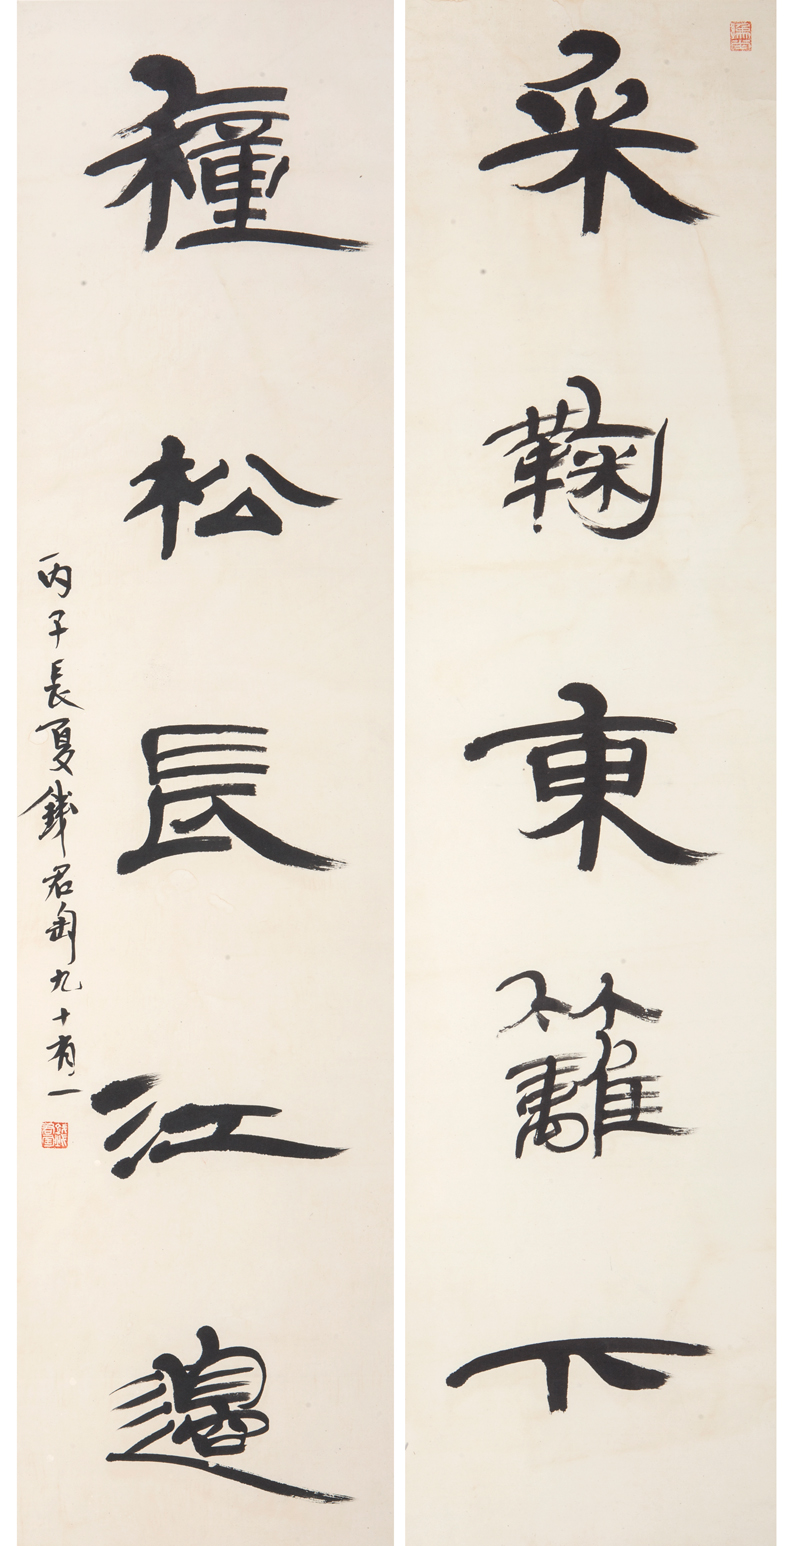 采鞠東籬下
種松長江邊
丙子長夏錢君匋九十有一